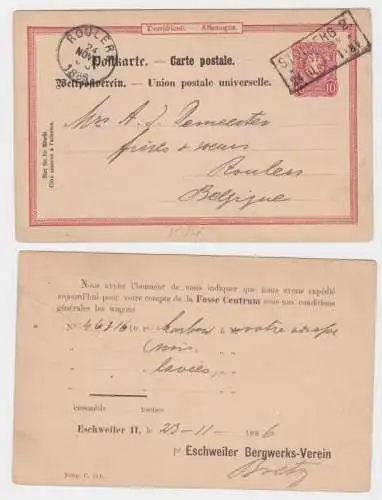 Deutschland. - Allemagne.
Postkarte. — Carte postale.
Weltpostverein. — Union postale universelle.
ROULERS
24
NOV
1886
10
Nur für die Adresse.
Côté réservé à l'adresse.
Mrs A. J. Demeester
frères & soeurs
Roulers
Belgique
Nous avons l'honneur de vous indiquer que nous avons expédié
aujourd'hui pour votre compte de la Fosse Centrum sous nos conditions
générales les wagons
No 46316 10 to charbon à votre adresse
noix „
lavées, „
„ „
ensemble tonnes
Eschweiler II, le 23-11- 1886
pr Eschweiler Bergwerks-Verein